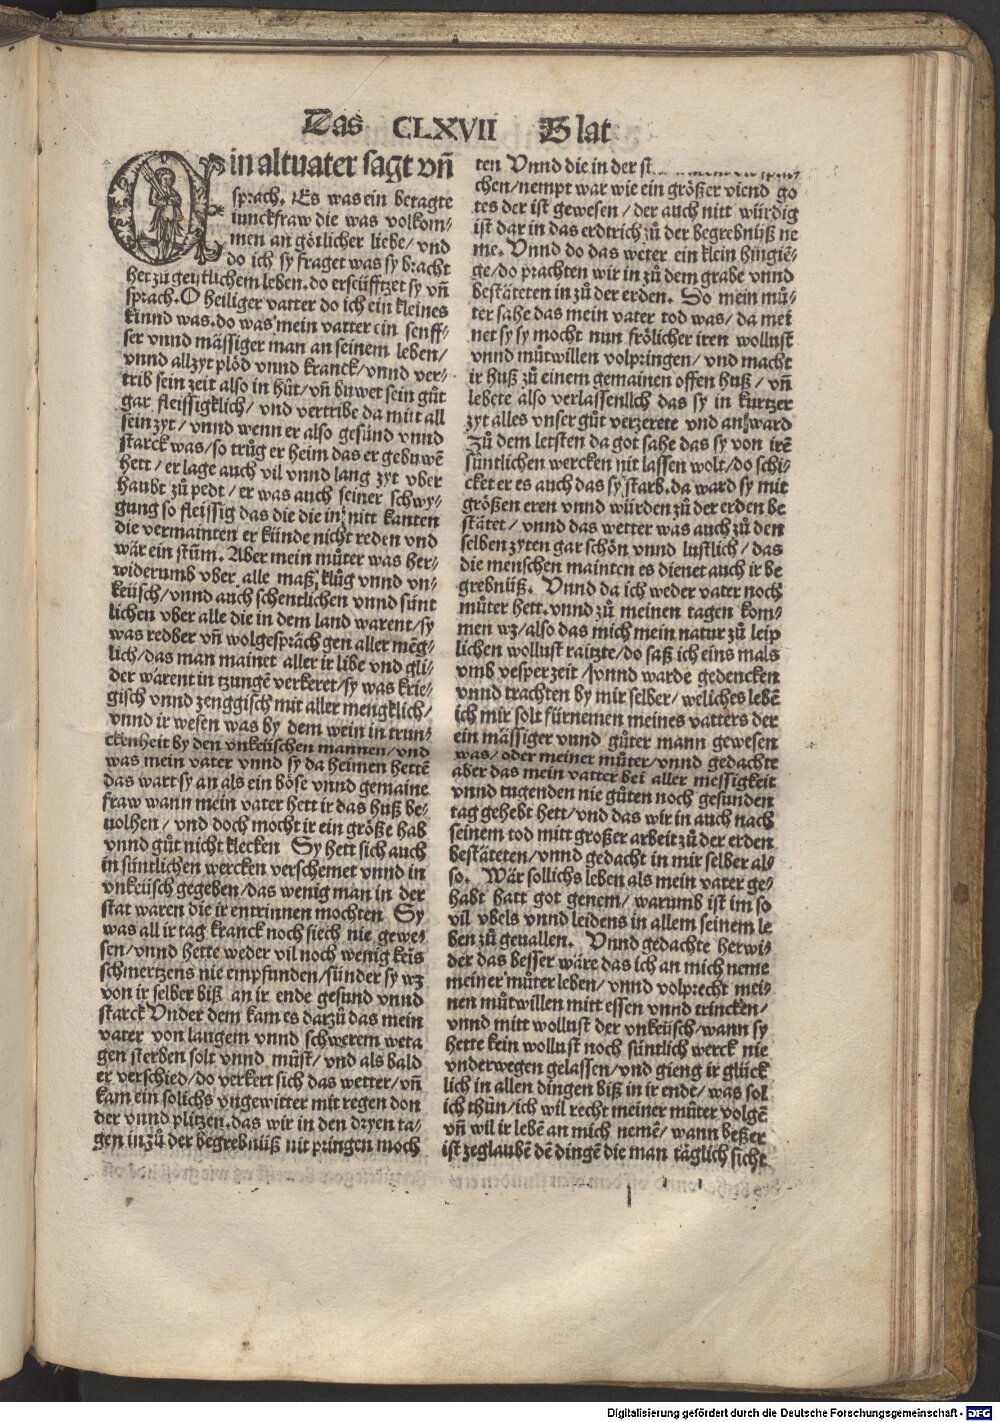 Das CLXVII Blat
in altuater sagt vn̄
sprach. Es was ein betagte
iunckfraw die was volkom⸗
men an götlicher liebe/ vnd
do ich sy fraget was sy bracht
het zů geistlichem leben. do ersüfftzet sy vn̄
sprach. O heiliger vatter do ich ein kleines
kinnd was. do was mein vatter ein senff⸗
ser vnnd mässiger man an seinem leben/
vnnd allzyt plöd vnnd kranck/ vnnd ver⸗
trib sein zeit also in hůt/ vn̄ buwet sein gůt
gar fleissigklich/ vnd vertribe da mitt all
sein zyt/ vnnd wenn er also gesünd vnnd
starck was/ so trůg er heim das er gebuwē
hett/ er lage auch vil vnnd lang zyt vber
haubt zů pedt/ er was auch seiner schwy⸗
gung so fleissig das die die in nitt kanten
die vermainten er künde nicht reden vnd
wär ein stūm. Aber mein můter was her⸗
widerumb vber alle maß klůg vnnd vn⸗
keüsch/ vnnd auch schentlichen vnnd sünt
lichen vber alle die in dem land warent/ sy
was redber vn̄ wolgespräch gen aller mēg⸗
lich/ das man mainet aller ir libe vnd gli⸗
der warent in tzungē verkeret/ sy was krie⸗
gisch vnnd zenggisch mit aller mengklich/
vnnd ir wesen was by dem wein in trun⸗
ckenheit by den vnkeüschen mannen/ vnd
was mein vater vnnd sy da heimen hettē
das wart sy an als ein böse vnnd gemaine
fraw wann mein vater hett ir das huß be⸗
uolhen/ vnd doch mocht ir ein größe hab
vnnd gůt nicht klecken Sy hett sich auch
in süntlichen wercken verschemet vnnd in
vnkeüsch gegeben/ das wenig man in der
stat waren die ir entrinnen mochten Sy
was all ir tag kranck noch siech nie gewe⸗
sen/ vnnd hette weder vil noch wenig keis
schmertzens nie empfunden/ sünder sy wz
von ir selber biß an ir ende gesund vnnd
starck Vnder dem kam es darzů das mein
vater von langem vnnd schwerem weta
gen sterben solt vnnd můst/ vnd als bald
er verschied/ do verkert sich das wetter/ vn̄
kam ein solichs vngewitter mit regen don
der vnnd plitzen. das wir in den dryen ta⸗
gen in zů der begrebnüß nit pringen moch
ten Vnnd die in der st
chen/ nempt war wie ein größer viend go
tes der ist gewesen/ der auch nitt würdig
ist dar in das erdtrich zů der begrebnüß ne
me. Vnnd do das weter ein klein hingiē⸗
ge/ do prachten wir in zů dem grabe vnnd
bestäteten in zů der erden. So mein můͤ⸗
ter sahe das mein vater tod was/ da mei
net sy sy mocht nun frölicher iren wollust
vnnd můtwillen volpringen/ vnd macht
ir huß zů einem gemainen offen huß/ vn̄
lebete also verlassenlich das sy in kurtzer
zyt alles vnser gůt verzerete vnd an ward
Zů dem letsten da got sahe das sy von irē
süntlichen wercken nit lassen wolt/ do schi⸗
cket er es auch das sy starb. da ward sy mit
größen eren vnnd würden zů der erden be
stätet/ vnnd das wetter was auch zů den
selben zyten gar schön vnnd lustlich/ das
die menschen mainten es dienet auch ir be
grebnüß. Vnnd da ich weder vater noch
můter hett. vnnd zů meinen tagen kom⸗
men wz/ also das mich mein natur zů leip
lichen wollust raitzte/ do saß ich eins mals
vmb vesper zeit/ vnnd warde gedencken
vnnd trachten by mir selber/ weliches lebē
ich mir solt fürnemen meines vatters der
ein mässiger vnnd gůter mann gewesen
was/ oder meiner můter/ vnnd gedachte
aber das mein vatter bei aller messigkeit
vnnd tugenden nie gůten noch gesunden
tag gehebt hett/ vnd das wir in auch nach
seinem tod mitt großer arbeit zů der erden
bestäteten/ vnnd gedacht in mir selber al⸗
so. Wär sollichs leben als mein vater ge⸗
habt hatt got genem/ warumb ist im so
vil vbels vnnd leidens in allem seinem le
ben zů geuallen. Vnnd gedachte herwi⸗
der das besser wäre das ich an mich neme
meiner můter leben/ vnnd volprecht mei⸗
nen můtwillen mitt essen vnnd trincken/
vnnd mitt wollust der vnkeüsch/ wann sy
hette kein wollust noch süntlich werck nie
vnderwegen gelassen/ vnd gieng ir glück
lich in allen dingen biß in ir ende/ was sol
ich thůn/ ich wil recht meiner můter volgē
vn̄ wil ir lebē an mich nemē/ wann beßer
ist zeglaubē dē dingē die man täglich sicht
Digitalisierung gefördert durch die Deutsche Forschungsgemeinschaft - DFG